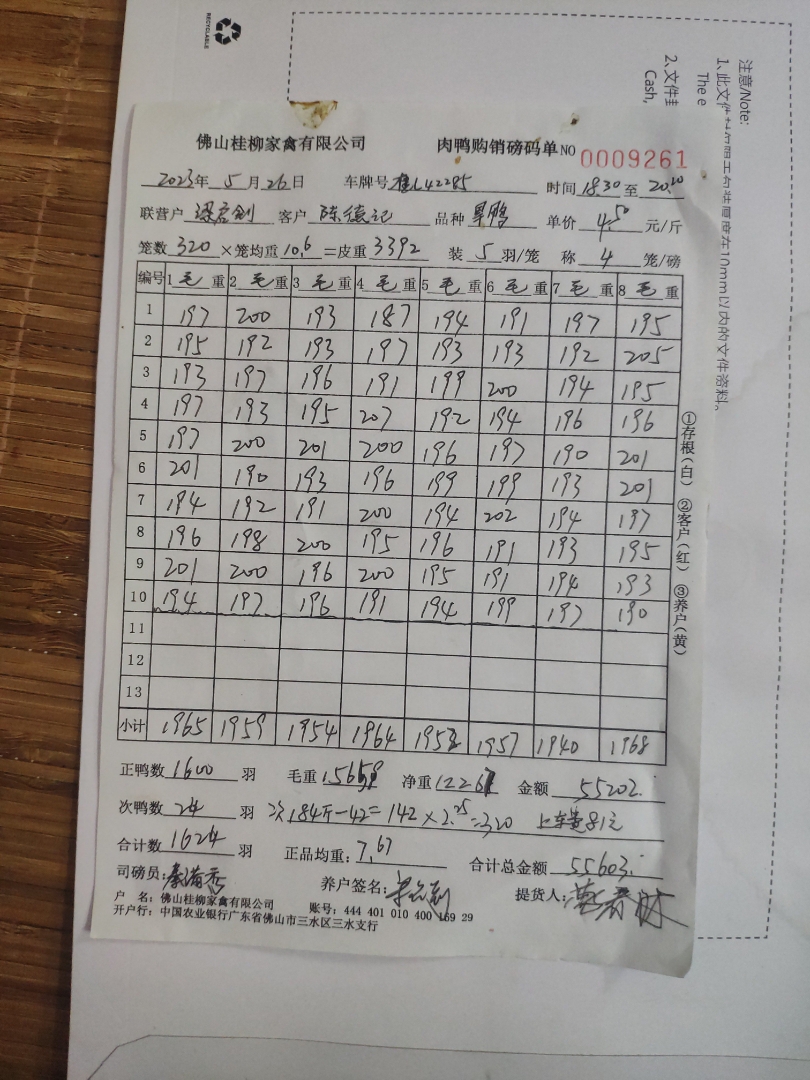 RECYCLABLE
注意/Note:
The e
2、文件
Cash,
佛山桂柳家禽有限公司 肉鸭购销磅码单 NO 0009261
2023年 5月 26日 车牌号 桂L42285 时间 1830 至 20.20
联营户 客户 陈德记 品种 旱鸭 单价 4.50 元/斤
笼数 320 ×笼均重 10.6 =皮重 3392 装 5 羽/笼 称 4 笼/磅
编号 1 毛 重 2 毛 重 3 毛 重 4 毛 重 5 毛 重 6 毛 重 7 毛 重 8 毛 重
1 197 200 193 187 194 191 197 195
2 195 192 193 197 193 193 192 205
3 193 197 196 191 199 200 194 195
4 197 193 195 207 192 194 196 196
5 197 200 201 200 196 197 190 201
6 201 190 193 196 199 199 193 201
7 194 192 191 200 194 202 194 197
8 196 198 200 195 196 191 193 195
9 201 200 196 200 195 191 194 193
10 194 197 196 191 194 199 197 190
11
12
13
小计 1965 1959 1954 1964 1952 1957 1940 1968
①存根(白) ②客户(红) ③养户(黄)
正鸭数 1600 羽 毛重 15659 净重 12267 金额 55202.
次鸭数 24 羽 次184斤-42=142×2.25=320 上车费81元
合计数 1624 羽 正品均重: 7.67 合计总金额 55603.
司磅员: 养户签名: 提货人:
户 名: 佛山桂柳家禽有限公司 账号: 444 401 010 400 169 29
开户行: 中国农业银行广东省佛山市三水区三水支行